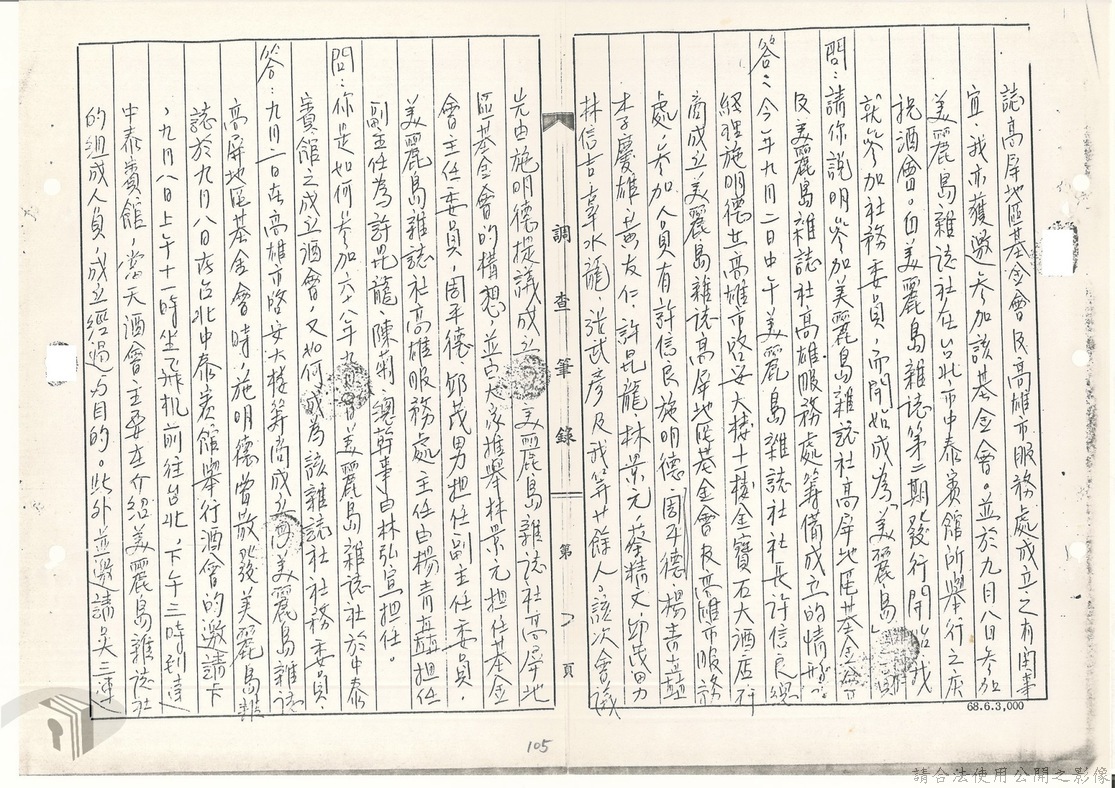 誌高屏地區基金會及高雄市服務處成立之有関事
宜,我亦獲邀参加該基金會。並於九月八日参加
美麗島雜誌社在台北市中泰賓館所舉行之庆
祝酒會。自美麗島雜誌第二期發行開始我
就参加社務委員,而開始成為「美麗島」
問:請你說明参加美麗島雜誌社高屏地區基金會
及美麗島雜誌社高雄服務處籌備成立的情形?
答:今年九月二日中午美麗島雜誌社社長許信良總
經理施明德在高雄市啓安大樓十一楼金寶石大酒店研
商成立美麗島雜誌高屏地區基金會及高雄市服務
處,参加人員有許信良施明德周平德楊青矗
李慶雄、黄友仁、許昆龍林景元蔡精文邱茂男
林信吉辜水龍、張武彦及我等廿餘人。該次會議
調查筆錄
第 頁
68.6.3,000
先由施明德提議成立美麗島雜誌社高屏地
區基金會的構想,並由大家推舉林景元担任基金
會主任委員,周平德、邱茂男担任副主任委員,
美麗島雜誌社高雄服務處主任由楊青矗担任
副主任為許昆龍、陳菊總幹事由林弘宣担任。
問:你是如何参加六十八年九月八日美麗島雜誌社於中泰
賓館之成立酒會,又如何成為該雜誌社社務委員?
答:九月二日在高雄市啓安大樓籌商成立美麗島雜誌
高屏地區基金會時,施明德當散發美麗島雜
誌於九月八日在台北中泰賓館舉行酒會的邀請卡
,九月八日上午十一時坐飛机前往台北,下午三時到達
中泰賓館,當天酒會主要在介紹美麗島雜誌社
的組成人員,成立經過与目的。此外並邀請吳三連
105
請合法使用公開之影像